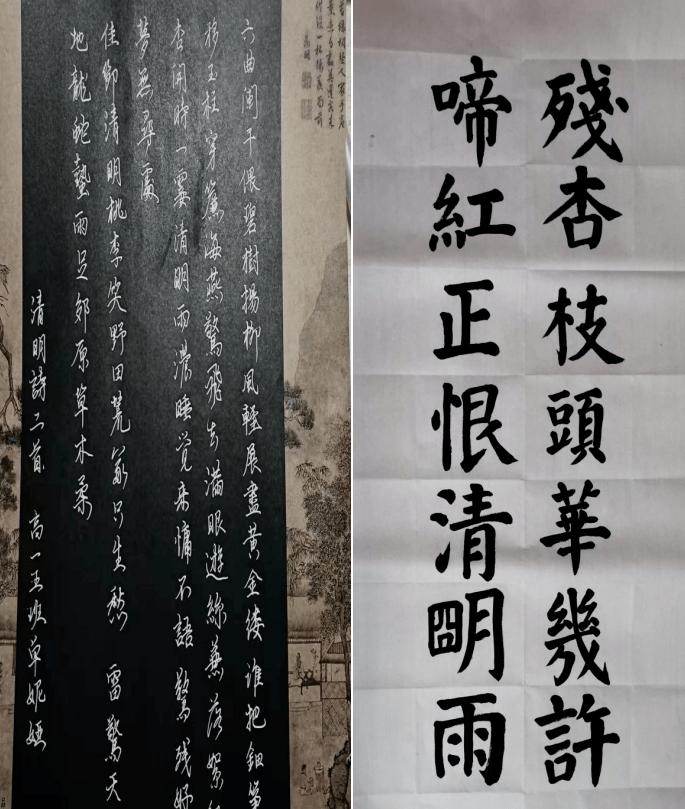 六曲闌干偎碧樹楊柳風輕展盡黄金缕谁把鈿筝
移玉柱穿簾海燕驚飛去滿眼遊絲兼落絮
杏開時一霎清明雨濃睡覚来慵不語驚残好
夢無尋處
佳節清明桃李笑野田荒冢只生愁 雷驚天
地龍蛇蟄雨足郊原草木柔
清明詩二首 高一五班单妮娅
殘杏枝頭華幾許
啼紅正恨清朙雨